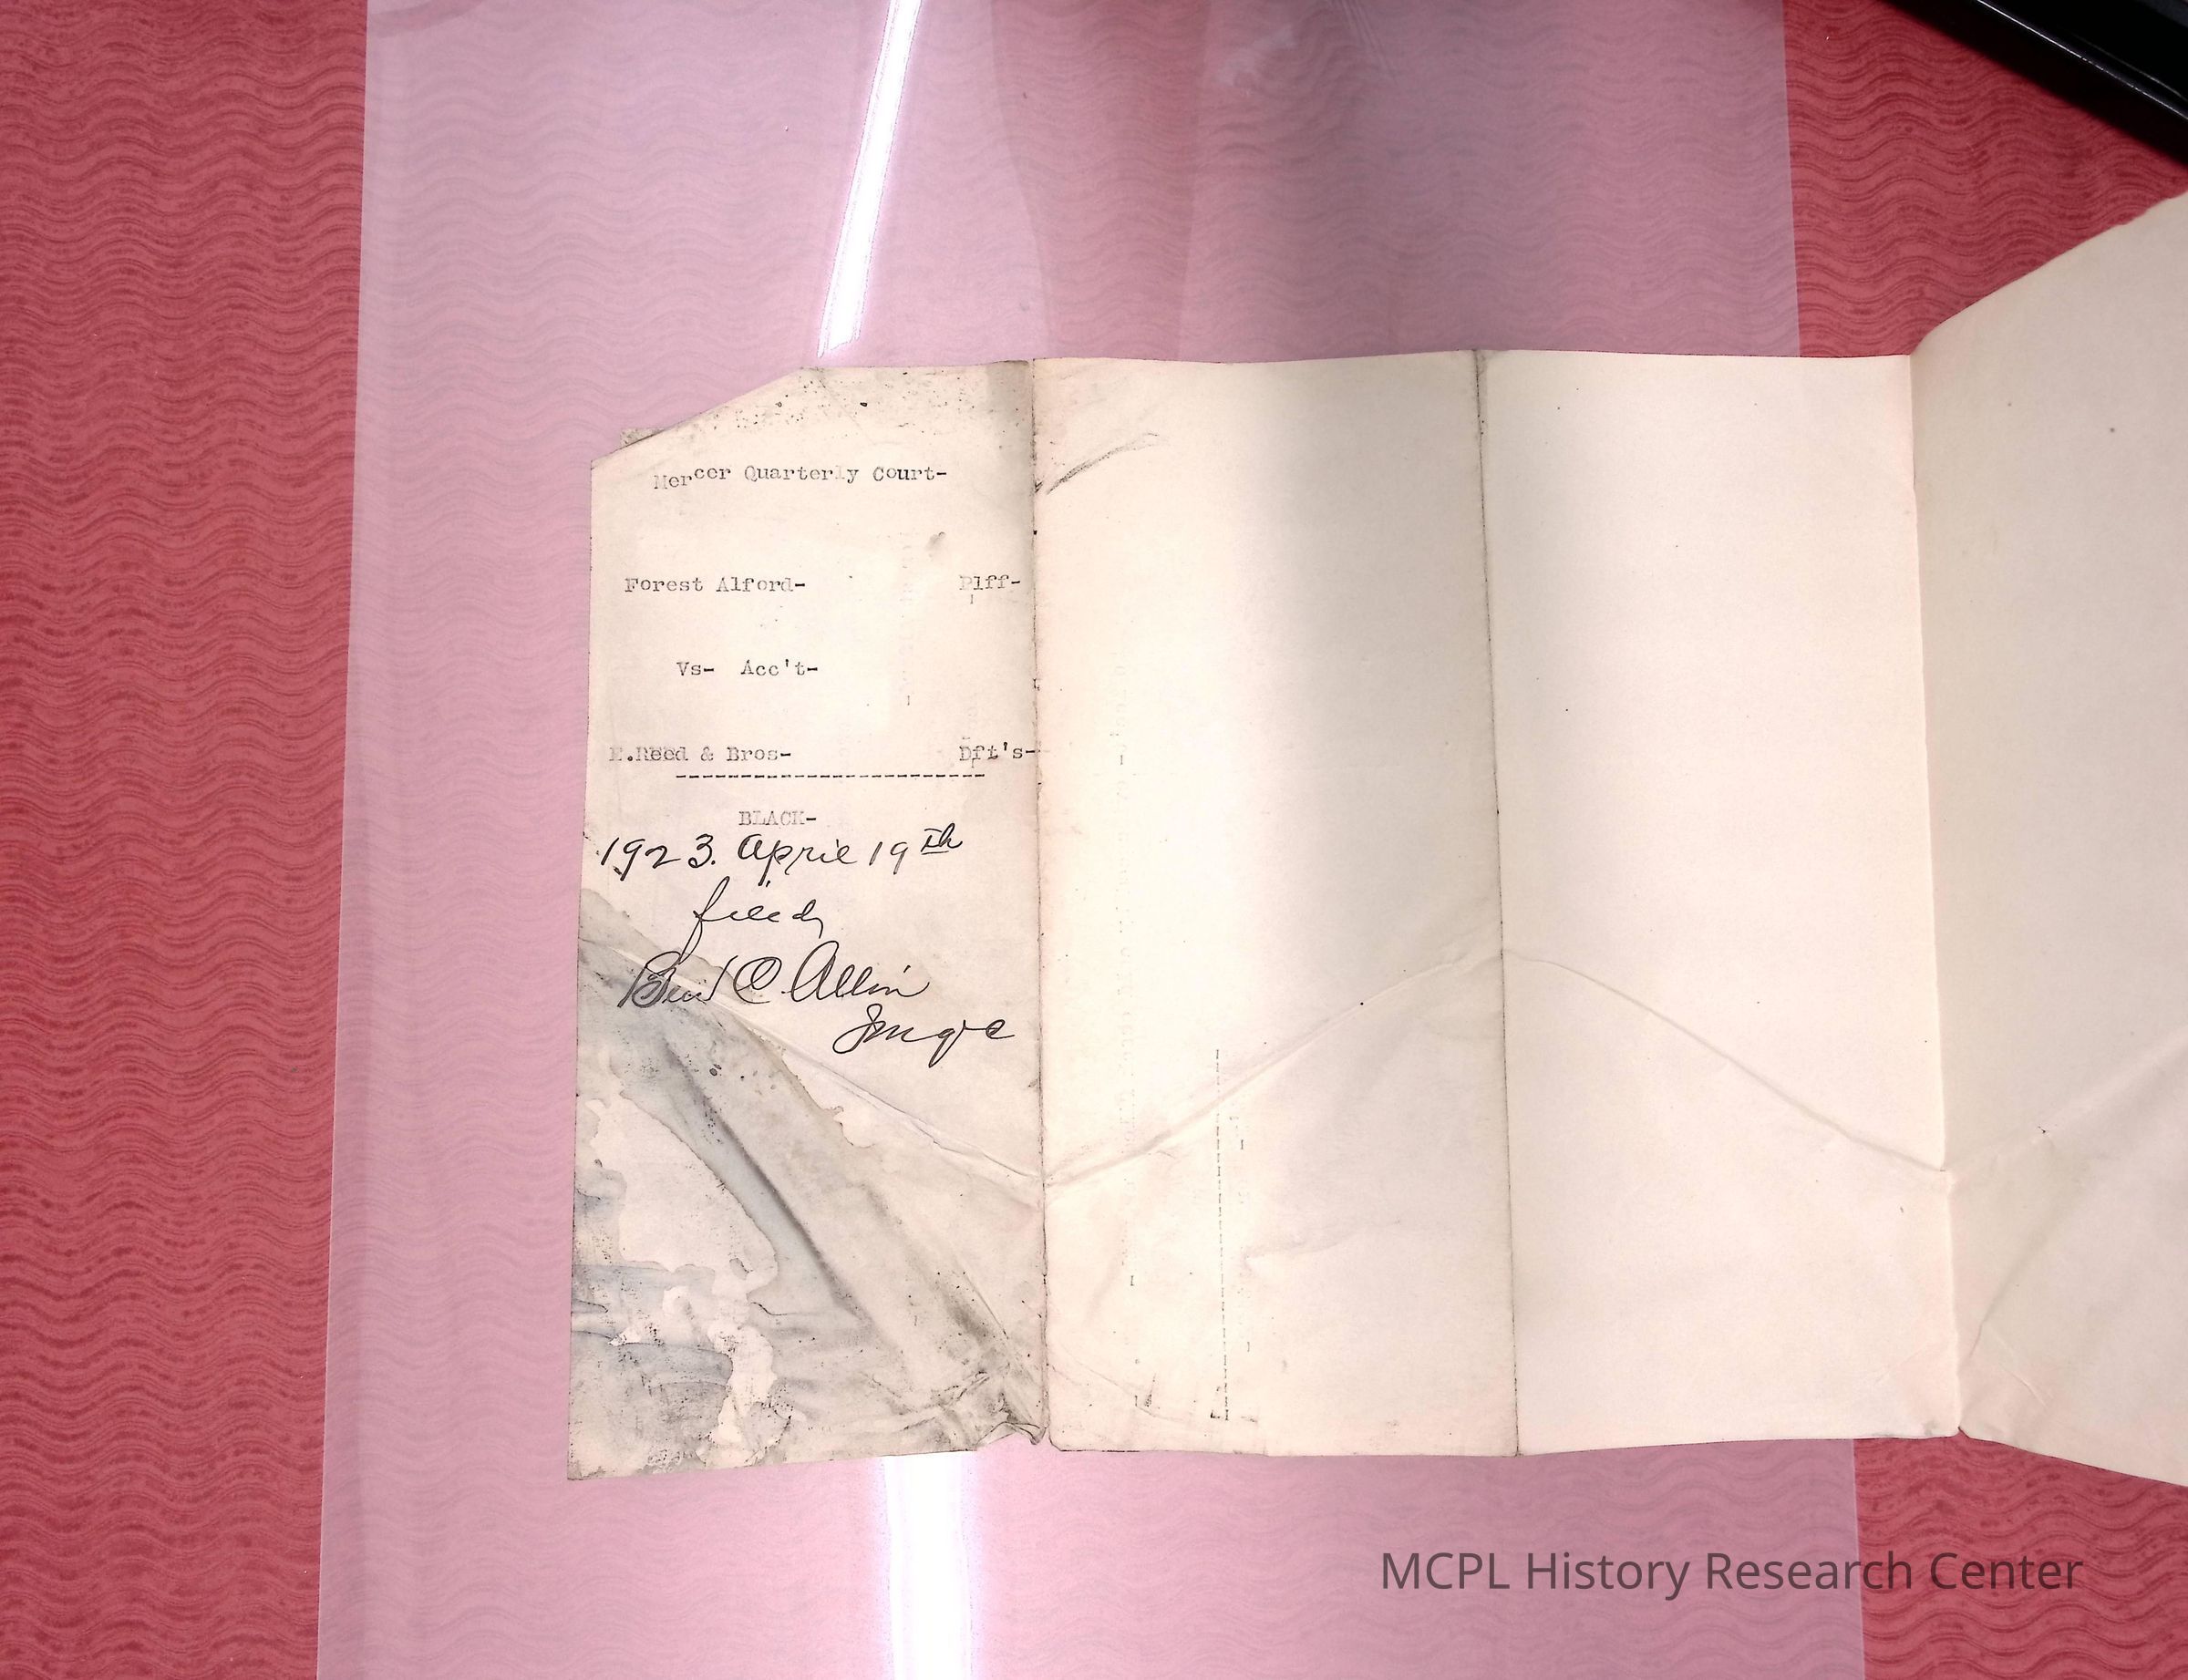 Mercer Quarterly Court-
Forest Alford- Plff-
Vs- Acc't-
E.Reed & Bros- Dft's-
-----------------------
BLACK-
1923. April 19th
filed,
Ben C. Allin
Judge
MCPL History Research Center